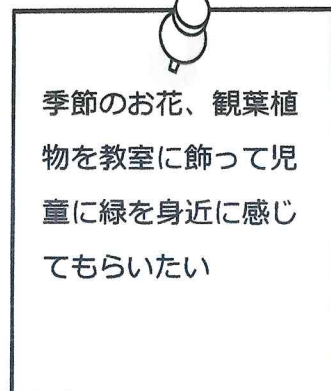 季節のお花、観葉植
物を教室に飾って児
童に緑を身近に感じ
てもらいたい